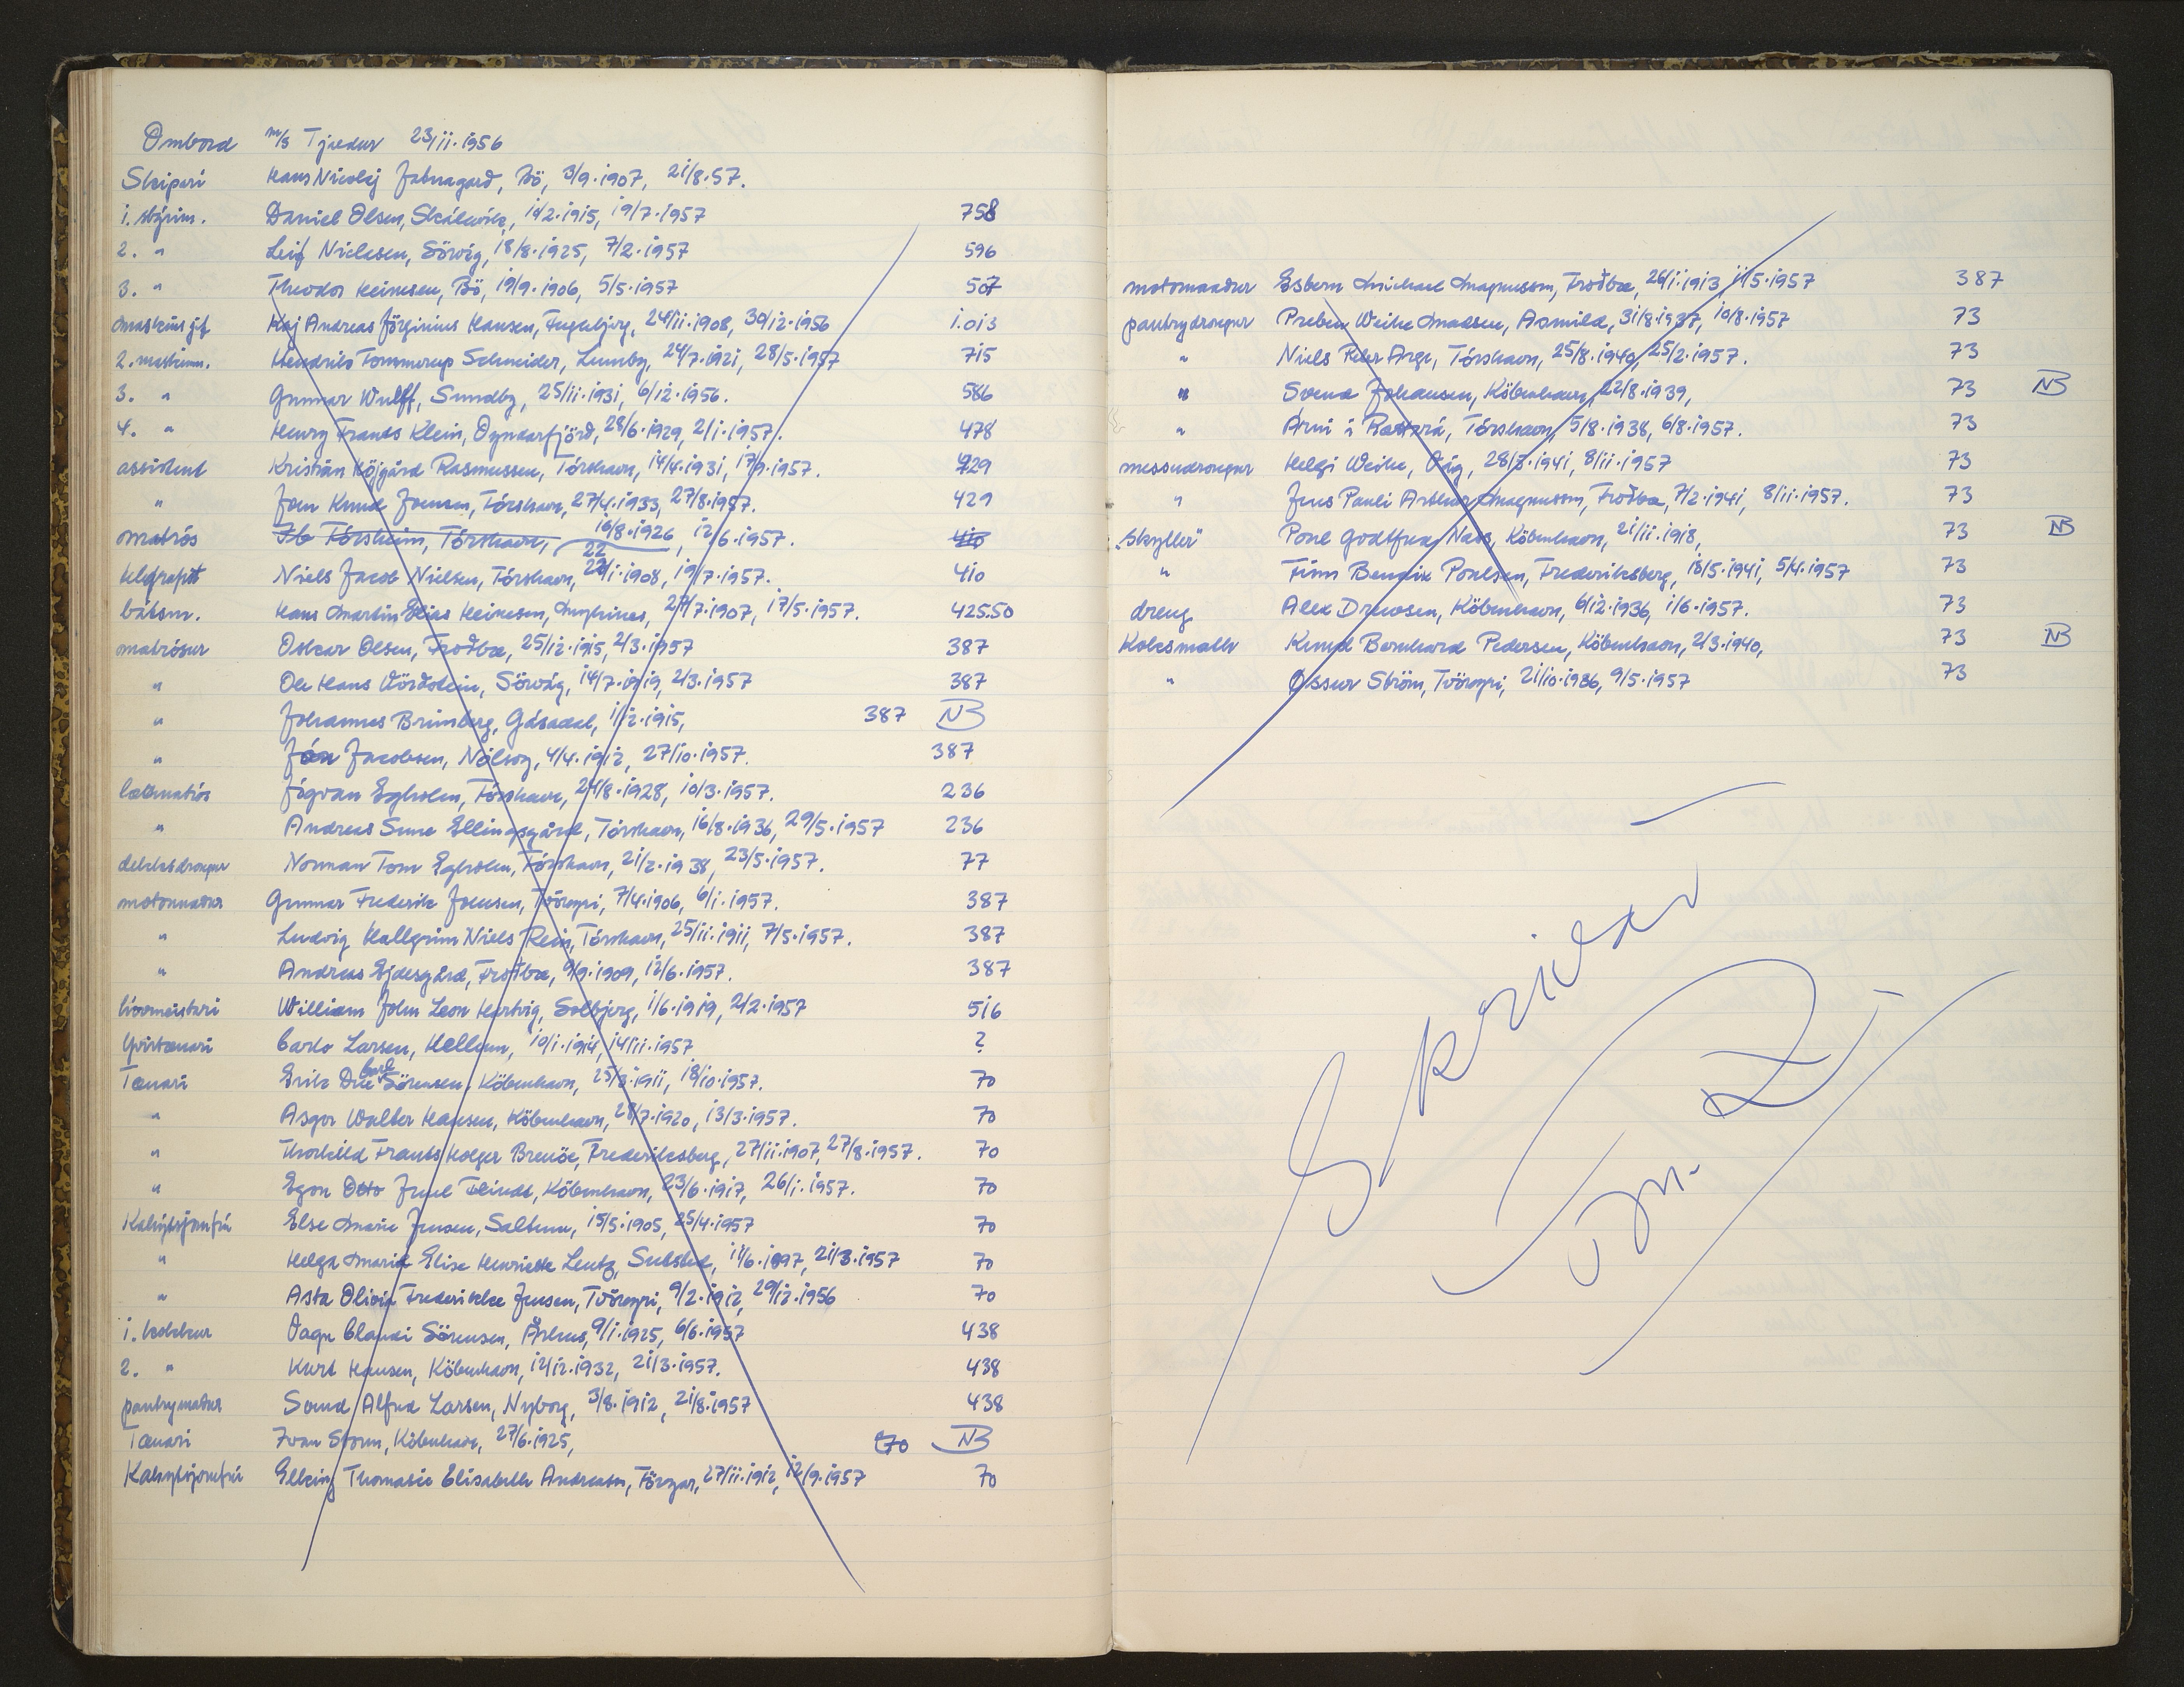 Ombord m/s Tjaldur 23/11.1956
Skipari Hans Nicolaj Jabnagarð, Bö, 3/9.1907, 21/8.57.
1. stýrim. Daniel Olsen, Skálavík, 2.1915, 19/7.1957 758
2. " Leif Niclasen, Sörvág, 18/8.1925, 7/2.1957 596
3. " Theodor Heinesen, Bö, 19/9.1906, 5/5.1957 507
maskinsjef Kaj Andreas Jörginius Hansen, Fuglebjerg, 24/11.1908, 30/12.1956 1.013
2. maskinm. Hendrik Tommerup Schneider, Lumby, 24/7.1921, 28/5.1957 715
3. " Gunnar Wulff, Sundby, 25/11.1931, 6/12.1956. 586
4. " Henry Frants Klein, Oyndarfjörð, 28/6.1929, 2/1.1957. 478
assistent Kristian Höjgård Rasmussen, Tórshavn, 14/4.1931, 17/9.1957. 429
" Jón Knud Joensen, Tórshavn, 27/4.1933, 27/8.1957. 429
matrós Ib Tórsheim, Tórshavn, 16/8.1926, 12/6.1957. 410
telegrafist Niels Jacob Nielsen, Tórshavn, 22/1.1908, 19/7.1957. 410
bátsm. Hans Martin Elias Heinesen, Mykines, 27/7.1907, 17/5.1957. 425.50
matrósur Oskar Olsen, Froðba, 25/12.1915, 2/3.1957 387
" Ole Hans Vörðstein, Sörvág, 14/7.1919, 2/3.1957 387
" Johannes Brimberg, Gásadal, 1/2.1915, 387 NB
" Jón Jacobsen, Nólsoy, 4/4.1912, 27/10.1957. 387
lættmatrós Jógvan Egholm, Tórshavn, 24/8.1928, 10/3.1957. 236
" Andreas Sune Ellingsgård, Tórshavn, 16/8.1936, 29/5.1957 236
dekksdrongur Norman Tom Egholm, Tórshavn, 21/2.1938, 23/5.1957. 77
motormaður Gunnar Frederik Joensen, Tvöroyri, 7/4.1906, 6/1.1957. 387
" Ludvig Hallgrim Niels Rein, Tórshavn, 25/11.1911, 7/5.1957. 387
" Andreas Ejdesgård, Froðba, 9/9.1909, 12/6.1957. 387
hovmeistari William John Leon Hartvig, Solbjerg, 1/6.1919, 2/2.1957 516
Yvirtænari Carlo Larsen, Hellum, 10/1.1914, 14/11.1957 ?
Tænari Erik Due Carl Sörensen, Köbenhavn, 25/3.1911, 18/10.1957. 70
" Asger Walter Hansen, Köbenhavn, 28/7.1920, 13/3.1957. 70
" Thorkild Frants Holger Brenöe, Frederiksberg, 27/11.1907, 27/8.1957. 70
" Egon Otto Juul Teindt, Köbenhavn, 23/6.1917, 26/1.1957. 70
Kahýtsjomfrú Else Marie Jensen, Saltum, 15/5.1905, 25/4.1957 70
" Helga Marie Elise Henriette Lentz, Sulsted, 11/6.1897, 21/3.1957 70
" Asta Olivia Frederikke Jensen, Tvöroyri, 9/2.1912, 29/12.1956 70
1. kokkur Vagn Clausi Sörensen, Århus, 9/1.1925, 6/6.1957 438
2. " Kurt Hansen, Köbenhavn, 12/12.1932, 21/3.1957. 438
pantrymaður Svend Alfred Larsen, Nyborg, 3/8.1912, 21/8.1957 438
Tænari Ivan Storm, Köbenhavn, 27/6.1925, 70 NB
Kahýtsjomfrú Elking Thomasia Elisabeth Andreasen, Föroyar, 27/11.1912, 12/9.1957 70
motormaður Esbern Michael Magnussen, Froðba, 26/1.1913, 11/5.1957 387
pantrydrongur Preben Weihe Madsen, Asmild, 31/8.1937, 10/8.1957 73
" Niels Peter Arge, Tórshavn, 25/8.1940, 25/2.1957. 73
" Svend Johansen, Köbenhavn, 22/8.1939, 73 NB
" Arni í , Tórshavn, 5/8.1938, 6/8.1957. 73
messudrongur Helgi Weihe, Vág, 28/3.1941, 8/11.1957 73
" Jens Pauli Arthur Magnussen, Froðba, 7/2.1941, 8/11.1957. 73
"Skyller" Poul Godtfred Nass, Köbenhavn, 21/11.1918, 73 NB
" Finn Bendix Poulsen, Frederiksberg, 18/5.1941, 5/4.1957 73
dreng Alex Drewsen, Köbenhavn, 6/12.1936, 1/6.1957. 73
Koksmath Knud Bernhard Pedersen, Köbenhavn, 2/3.1940, 73 NB
" Øssur Ström, Tvöroyri, 21/10.1936, 9/5.1957 73
Skrivað